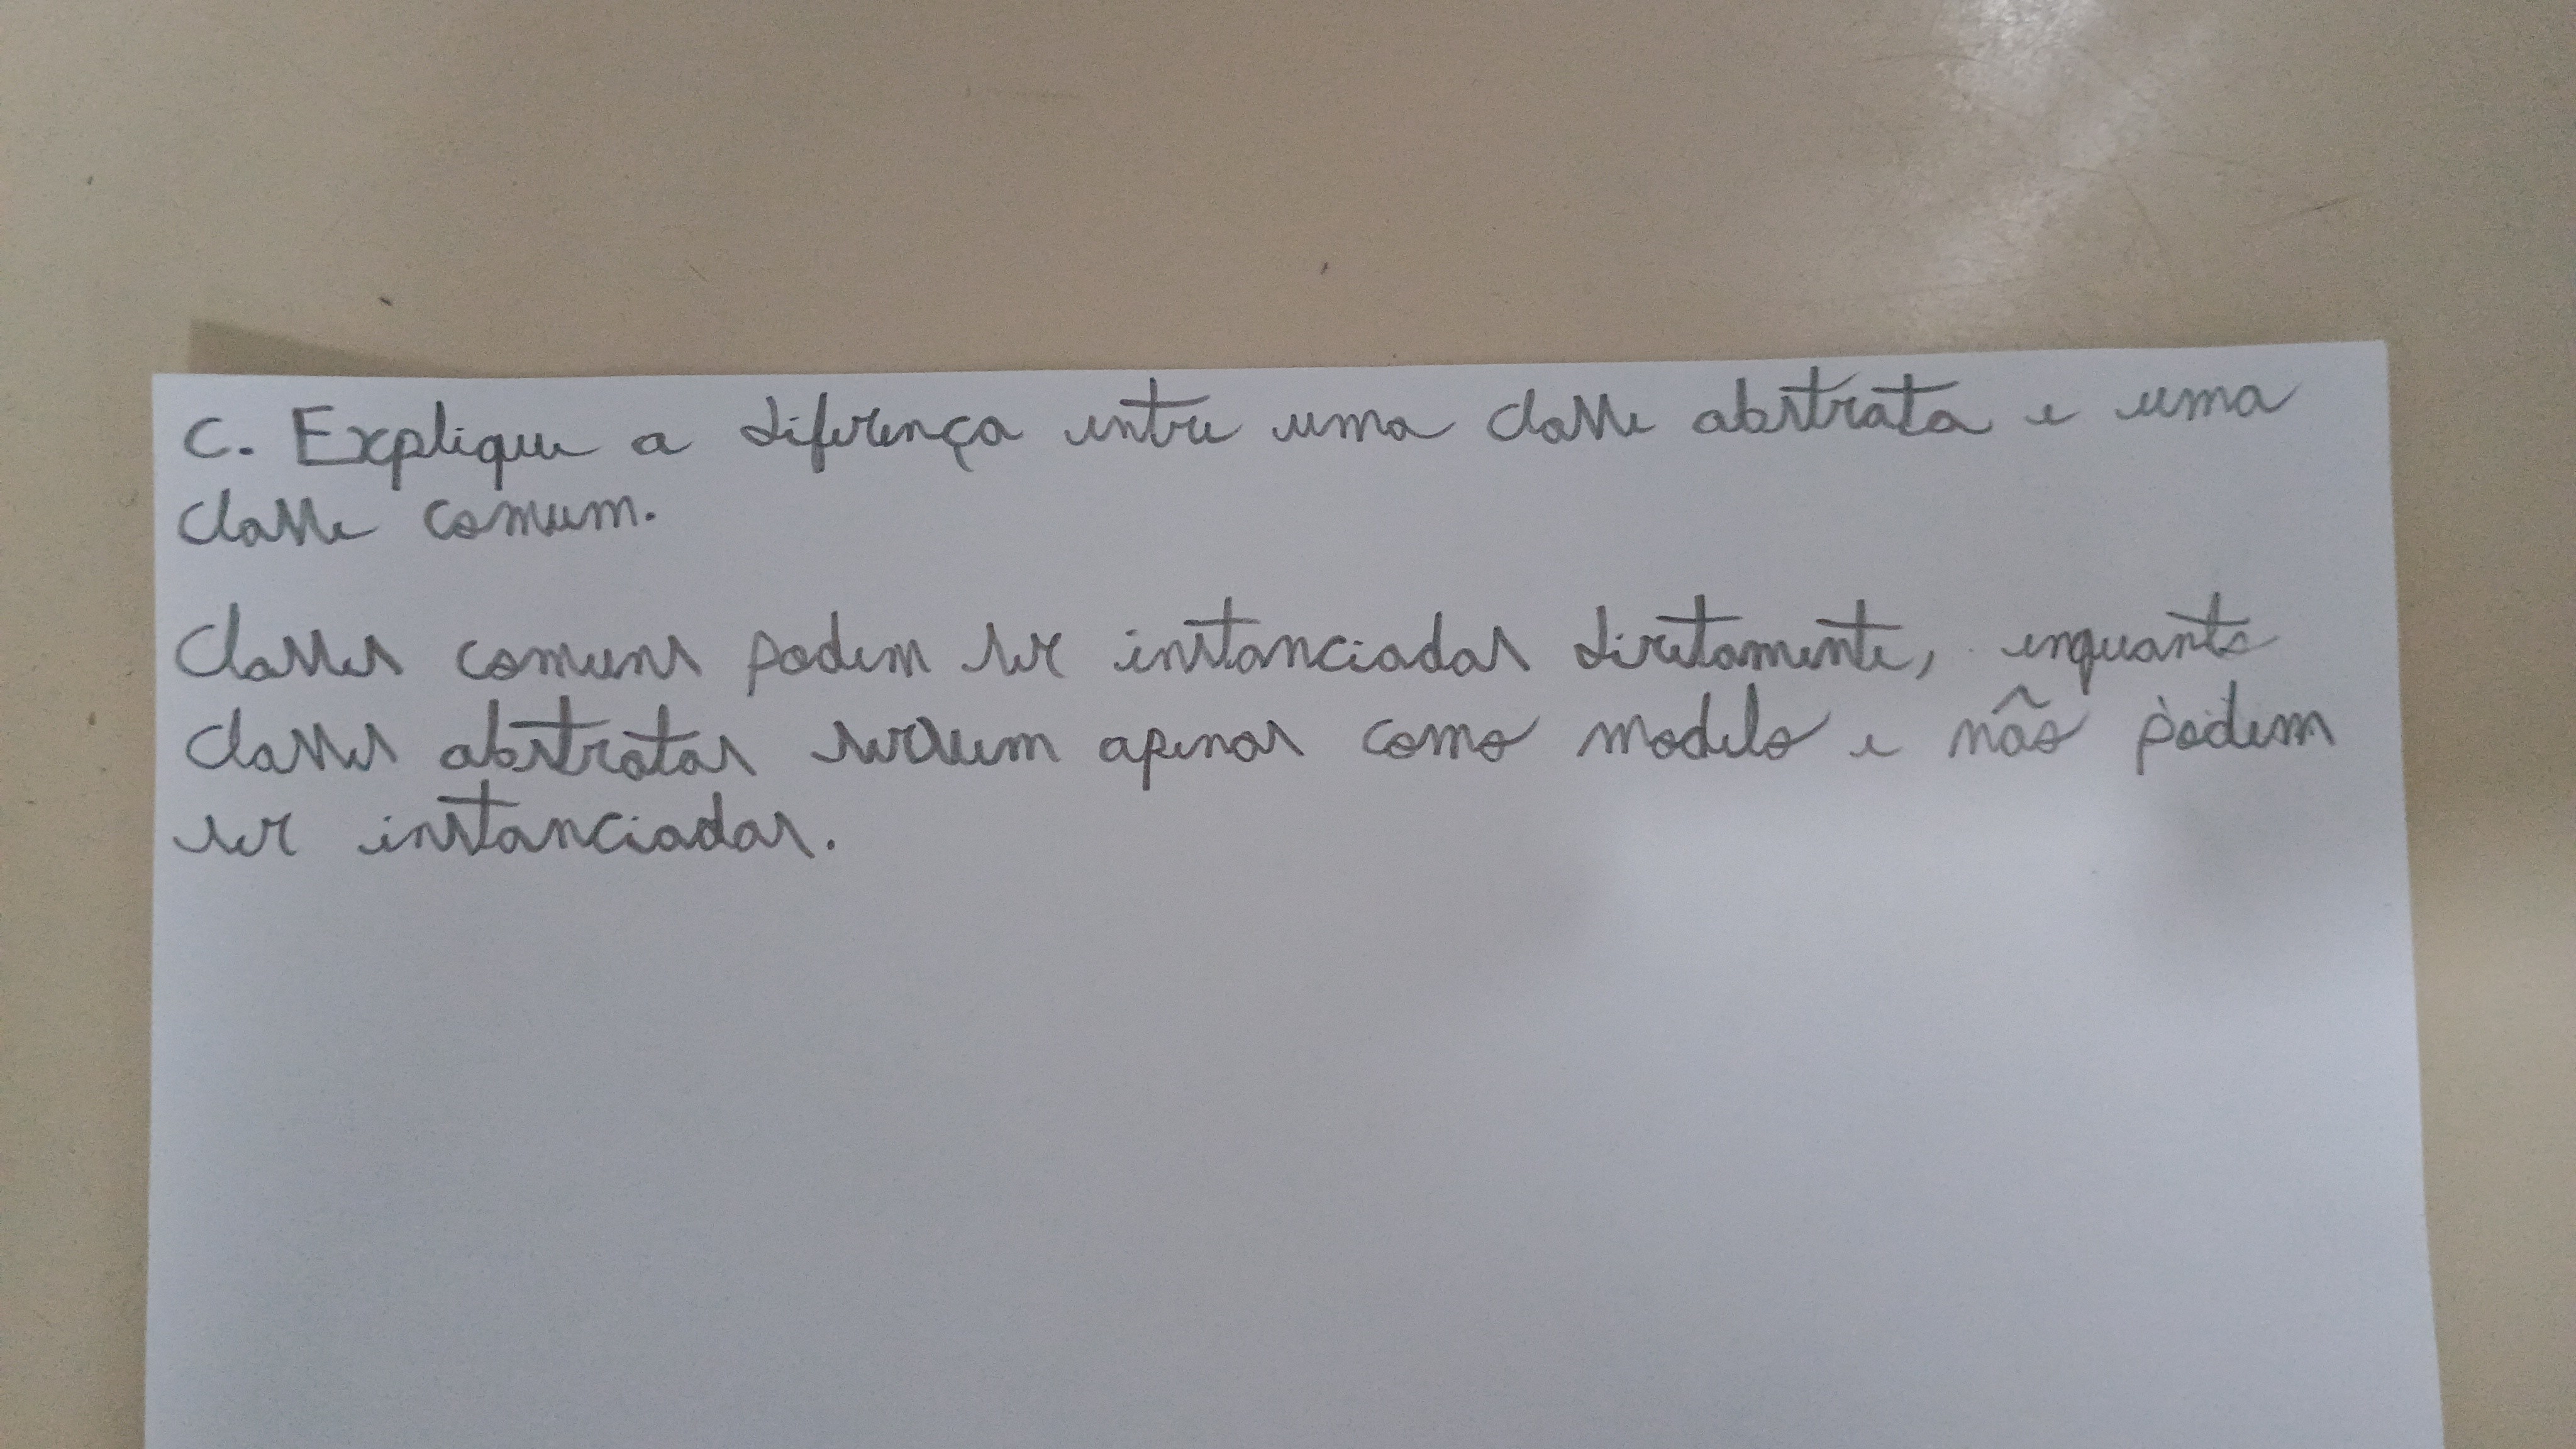 C. Explique a diferença entre uma classe abstrata e uma
classe comum.
Classes comuns podem ser instanciadas diretamente, enquanto
classes abstratas servem apenas como modelo e não podem
ser instanciadas.